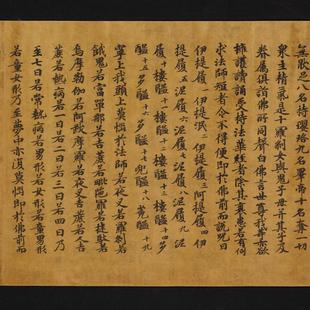 無厭足八名持瓔珞九名睪帝十名奪一切
衆生精氣是十羅剎女與鬼子母并其子及
眷屬俱詣佛所同聲白佛言世尊我等亦欲
擁護讀誦受持法華經者除其衰患若有伺
求法師短者令不得便即於佛前而說呪曰
伊提履一伊提泯二伊提履三阿提履四伊
提履五泥履六泥履七泥履八泥履九泥
履十樓醯十一樓醯十二樓醯十三樓醯十四多
醯十五多醯十六多醯十七兜醯十八㝹醯十九
寧上我頭上莫惱於法師若夜叉若羅剎若
餓鬼若富單那若吉蔗若毗陀羅若揵馱若
烏摩勒伽若阿跋摩羅若夜叉吉蔗若人吉
蔗若熱病若一日若二日若三日若四日乃
至七日若常熱病若男形若女形若童男形
若童女形乃至夢中亦復莫惱即於佛前